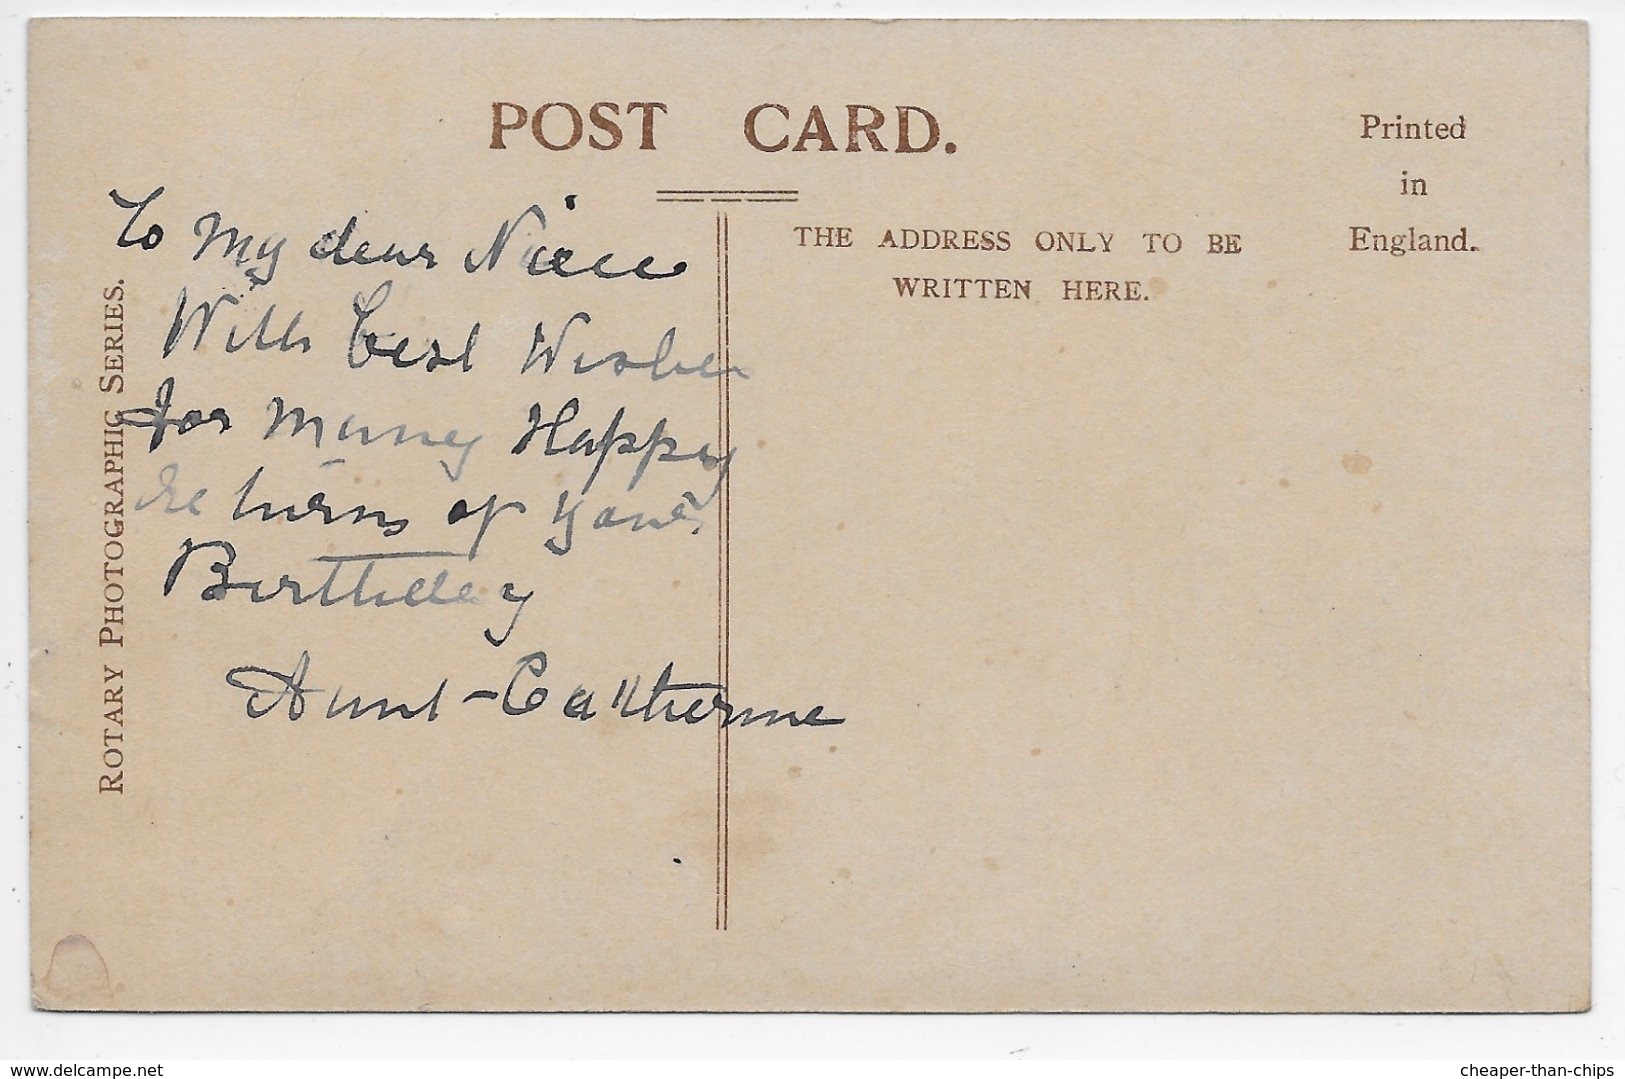 POST CARD.
Printed
in
England.
THE ADDRESS ONLY TO BE
WRITTEN HERE.
ROTARY PHOTOGRAPHIC SERIES.
To My dear Niece
With best Wishes
for Many Happy
Returns of your
Birthday
Aunt - Catherine
www.delcampe.net
cheaper-than-chips